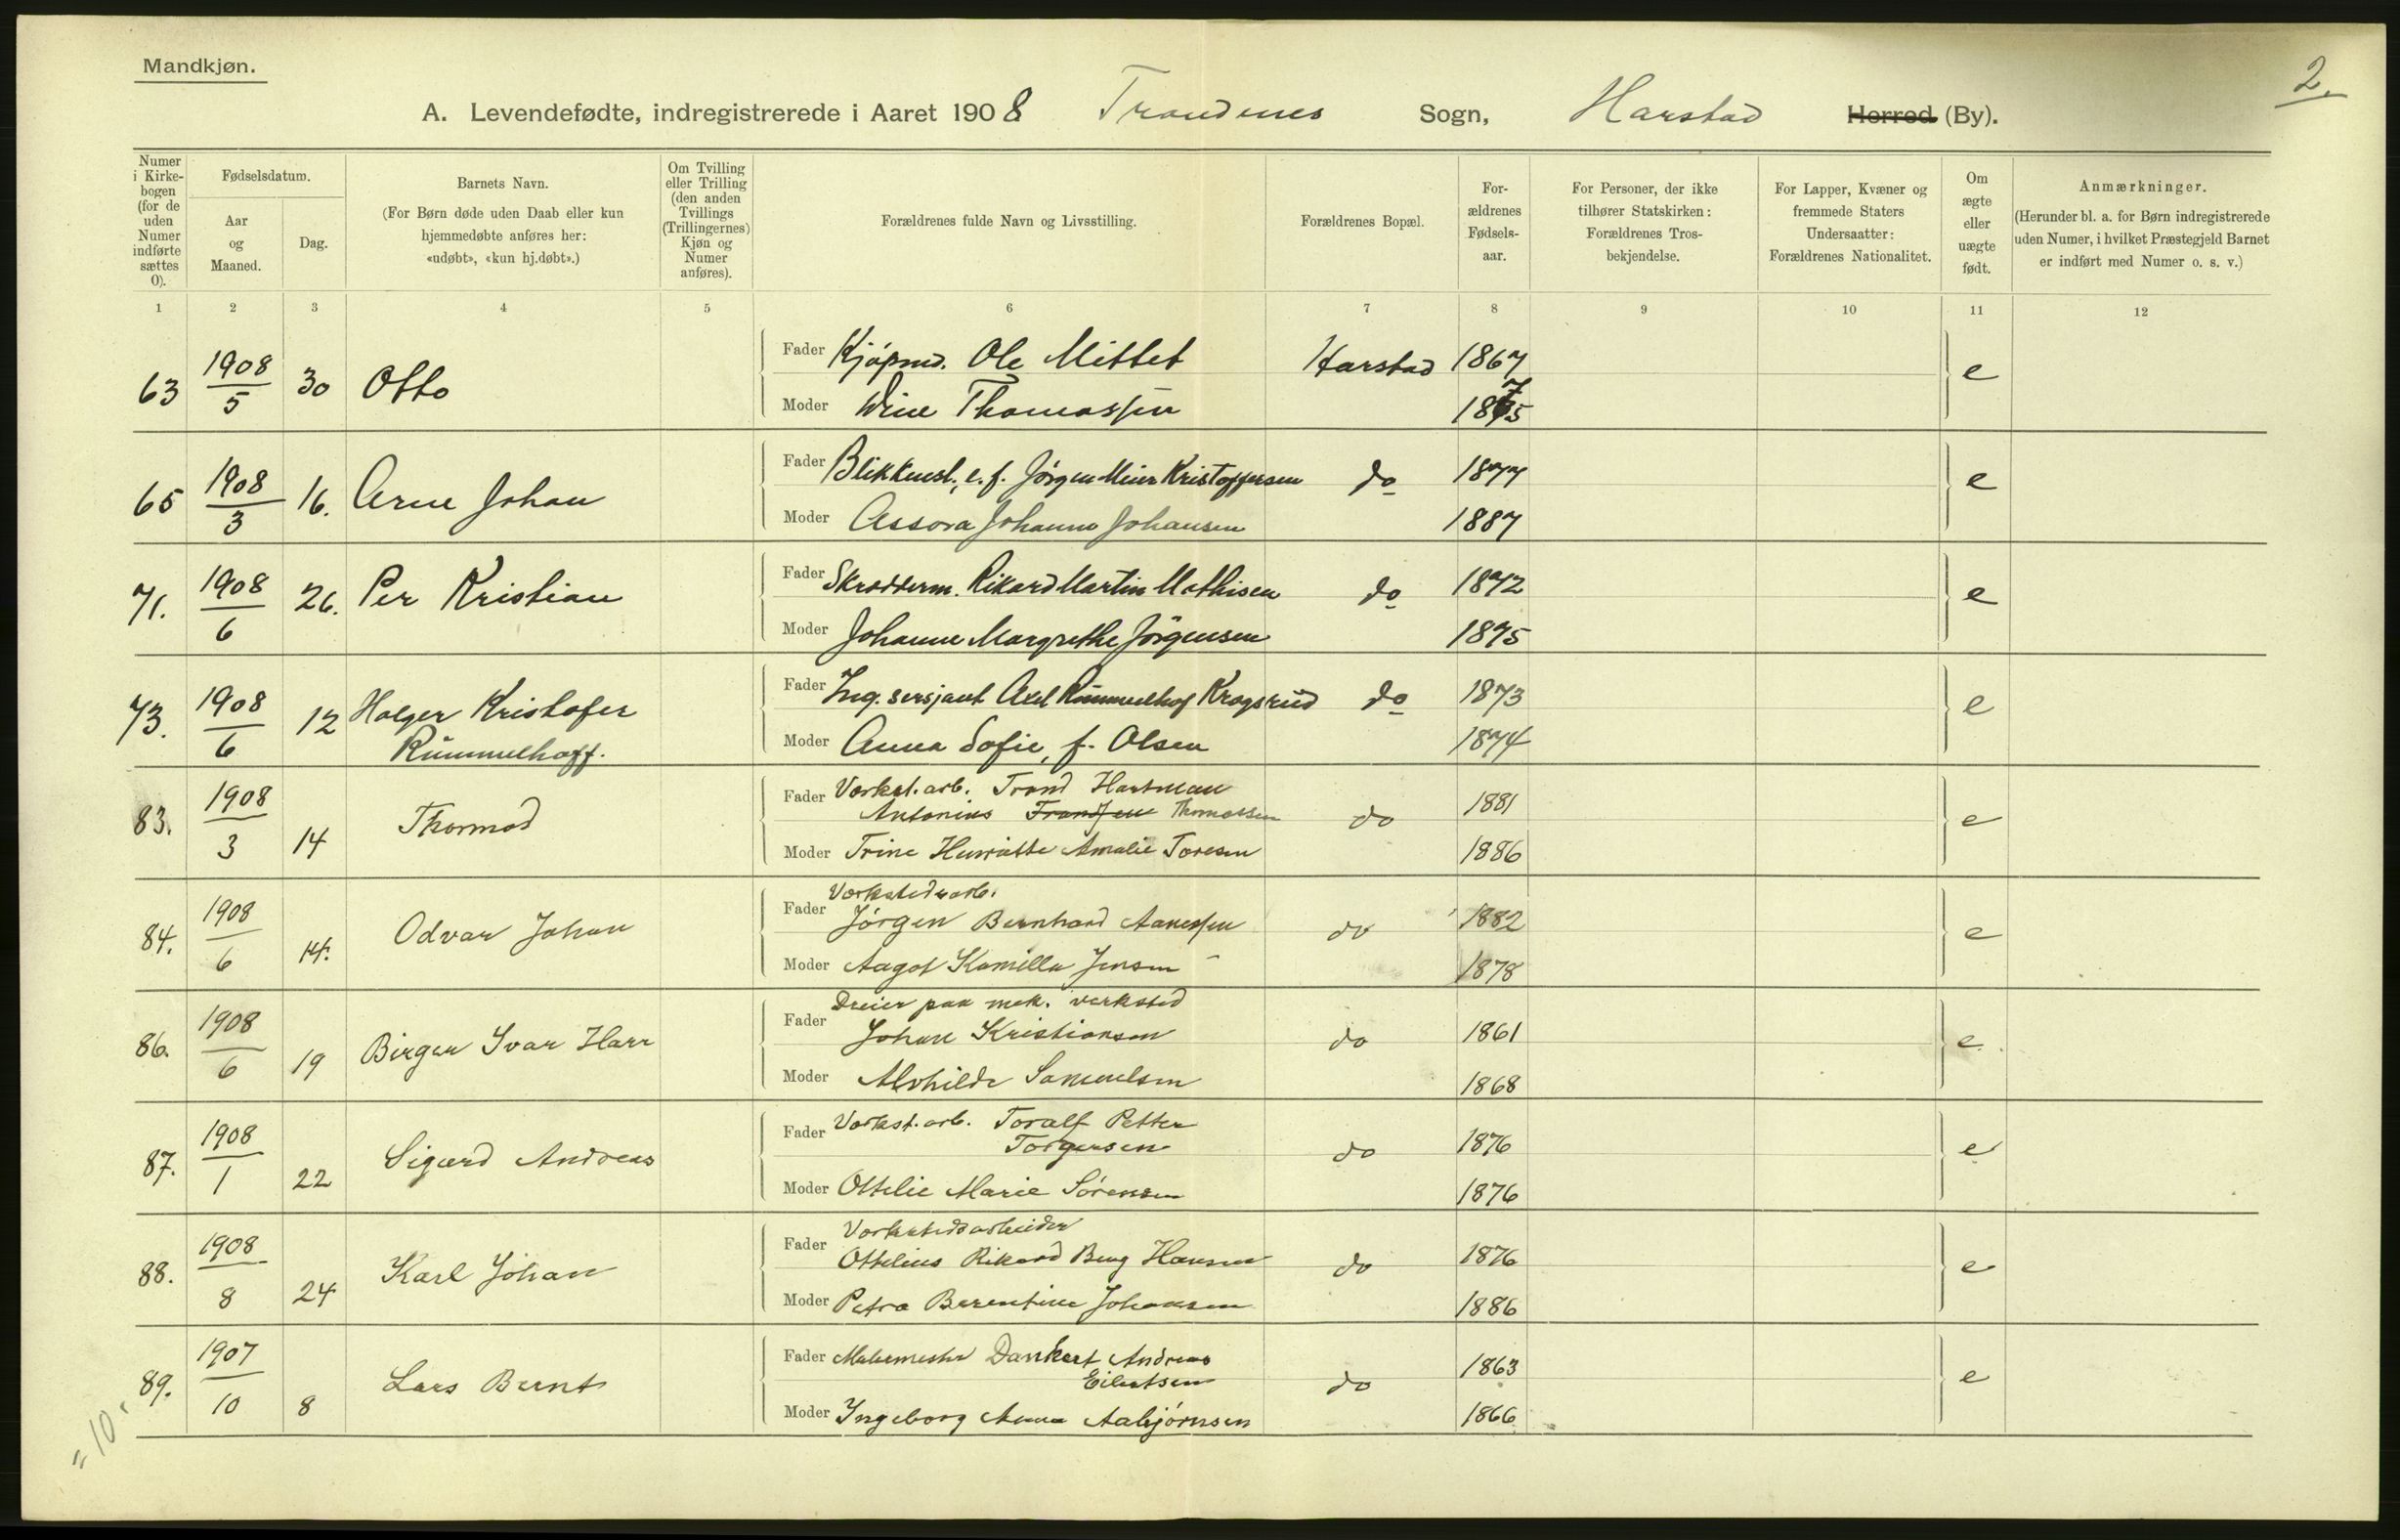 Mandkjøn.
2.
A. Levendefødte, indregistrerede i Aaret 1908 Trondenes Sogn, Harstad Herred (By).
Numer i Kirkebogen (for de uden Numer indførte sættes 0).
Fødselsdatum.
Aar og Maaned.
Dag.
Barnets Navn.
(For Børn døde uden Daab eller kun
hjemmedøbte anføres her:
«udøbt», «kun hj.døbt».)
Om Tvilling eller Trilling (den anden Tvillings (Trillingernes) Kjøn og Numer anføres).
Forældrenes fulde Navn og Livsstilling.
Forældrenes Bopæl.
For-
ældrenes
Fødsels-
aar.
For Personer, der ikke
tilhører Statskirken:
Forældrenes Tros-
bekjendelse.
For Lapper, Kvæner og
fremmede Staters
Undersaatter:
Forældrenes Nationalitet.
Om
ægte
eller
uægte
født.
Anmærkninger.
(Herunder bl. a. for Børn indregistrerede
uden Numer, i hvilket Præstegjeld Barnet
er indført med Numer o. s. v.)
1 2 3 4 5 6 7 8 9 10 11 12
63 1908/5 30 Otto
Fader Kjøpmd. Ole Mittet Harstad 1867 e
Moder Thomassen 1875
65 1908/3 16. Arne Johan
Fader Blikkensl., e. f. Jörgen Meier Kristoffersen do 1877 e
Moder Assora Johanne Johansen 1887
71. 1908/6 26. Per Kristian
Fader Skrædderm. Rikard Martin Mathisen do 1872 e
Moder Johanne Margrethe Jörgensen 1875
73. 1908/6 12 Holger Kristofer
Rümmelhoff.
Fader Ing. sersjant Axel Rümmelhof Krogsrud do 1873 e
Moder Anna Sofie, f. Olsen 1874
83. 1908/3 14 Thormod
Fader Verkst. arb. Trond Hartman
Antonius Frantsen Thomassen do 1881 e
Moder Trine Henriette Amalie Toresen 1886
84. 1908/6 14. Odvar Johan
Verkstedsarb.
Fader Jørgen Bernhard Aanessen do 1882 e
Moder Aagot Kamilla Jensen 1878
86. 1908/6 19 Birger Ivar Harr
Dreier paa mek. verksted
Fader Johan Kristiansen do 1861 e
Moder Alvhilde Samuelsen 1868
87. 1908/1 22 Sigurd Andreas
Fader Verkst. arb. Toralf Petter
Torgersen do 1876 e
Moder Ottelie Marie Sørensen 1876
88. 1908/8 24 Karl Johan
Verkstedsarbeider
Fader Ottelius Rikard Berg Hansen do 1876 e
Moder Petra Berentine Johansen 1886
89. 1907/10 8 Lars Bernt
Fader Malermester Dankert Andreas
Eilertsen do 1863 e
Moder Ingeborg Anna Asbjørnsen 1866
= 10.